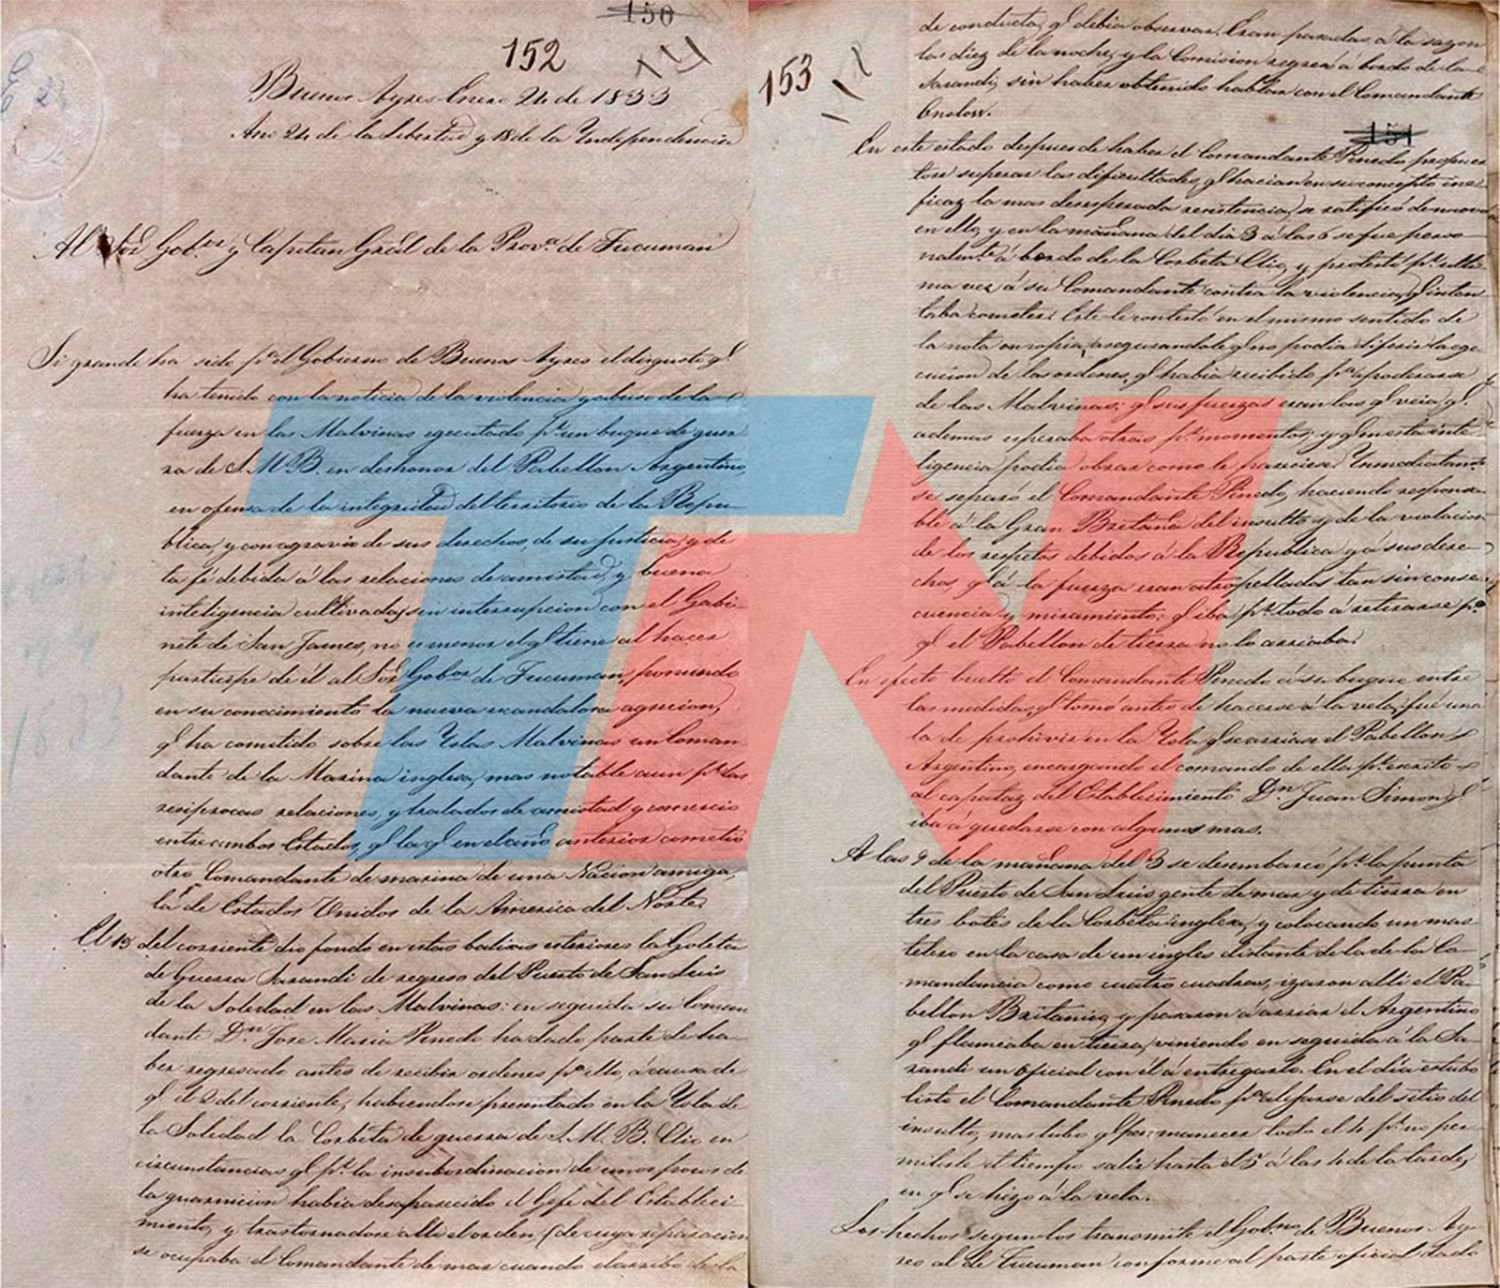 150
152
Buenos Ayres Enero 24 de 1833
Año 24 de la Libertad y 18 de la Independencia
Al Sõr Gob.or y Capitan Grãl de la Prov.a de Tucuman
Si grande ha sido p.a el Gobierno de Buenos Ayres el disgusto q.e
ha tenido con la noticia de la violencia y abuso de la
fuerza en las Malvinas egecutado p.r un buque de guer-
ra de S.M.B. en deshonor del Pabellon Argentino,
en ofensa de la integridad del territorio de la Repu-
blica, y con agravio de sus derechos, de su justicia, y de
la fé debida á las relaciones de amistad, y buena
inteligencia cultivadas sin interrupcion con el Gabi-
nete de San James, no es menor el q.e tiene al hacer
participe de él al Sõr Gob.or de Tucuman, poniendo
en su conocimiento la nueva escandalosa agresion,
q.e ha cometido sobre las Yslas Malvinas un Coman-
dante de la Marina inglesa, mas notable aun p.r las
reciprocas relaciones, y tratados de amistad y comercio
entre ambos Estados, q.e la q.e en el año anterior cometió
otro Comandante de marina de una Nacion amiga,
la de Estados Unidos de la America del Norte.
El 15 del corriente dio fondo en estas balizas exteriores la Goleta
de Guerra Sarandi de regreso del Puerto de San Luis
de la Soledad en las Malvinas: en seguida su Coman-
dante D.n Jose Maria Pinedo ha dado parte de ha-
ber regresado antes de recibir ordenes p.a ello, á causa de
q.e el 2 del corriente, habiendose presentado en la Ysla de
la Soledad la Corbeta de guerra de S.M.B. Clio en
circunstancias q.e p.r la insubordinacion de unos pocos de
la guarnicion habia desaparecido el Gefe del Estableci-
miento, y trastornadose alli el orden (de cuya reparacion
se ocupaba el Comandante de mar cuando el arribo de la
153
de conducta, q.e debia observar. Eran pasadas á la sazon
las diez de la noche, y la Comision regresó á bordo de la
Sarandi, sin haber obtenido hablar con el Comandante
Onslow.
151
En este estado despues de haber el Comandante Pinedo propues-
tose superar las dificultades, q.e hacian en su concepto ine-
ficaz la mas desesperada resistencia, se ratificó de nuevo
en ello, y en la mañana del dia 3 á las 6 se fue perso-
nalm.te á bordo de la Corbeta Clio, y protestó p.r ulti-
ma vez á su Comandante contra la violencia, q.e inten-
taba cometer. Este le contestó en el mismo sentido de
la nota en copia, asegurandole q.e no podia diferir la ege-
cucion de las ordenes, q.e habia recibido p.a apoderarse
de las Malvinas: q.e sus fuerzas eran las q.e veia, q.e
ademas esperaba otras p.r momentos; y q.e en esta inte-
ligencia podia obrar como le pareciese. Inmediatam.te
se separó el Comandante Pinedo, haciendo responsa-
ble á la Gran Bretaña del insulto y de la violacion
de los respetos debidos á la Republica, y á sus dere-
chos, q.e á la fuerza eran atropellados tan sin conse-
cuencia y miramiento: q.e iba p.r todo á retirarse p.o
q.e el Pabellon de tierra no lo arriaba.
En efecto buelto el Comandante Pinedo á su buque entre
las medidas, q.e tomó antes de hacerse á la vela, fué una
la de prohivir en la Ysla q.e se arriase el Pabellon
Argentino, encargando el comando de ella p.r escrito
al capataz del Establecimiento D.n Juan Simon, q.e
iba á quedarse con algunos mas.
A las 9 de la mañana del 3 se desembarcó p.r la punta
del Puerto de San Luis gente de mar y de tierra en
tres botes de la Corbeta inglesa, y colocando un mas-
telero en la casa de un ingles distante de la de la Co-
mandancia como cuatro cuadras, izaron alli el Pa-
bellon Britanico, y pasaron á arriar el Argentino
q.e flameaba en tierra, viniendo en seguida á la Sa-
randi un Oficial con él á entregarlo. En el dia estubo
listo el Comandante Pinedo p.a alejarse del sitio del
insulto, mas tubo q.e permanecer todo el 4 p.r no per-
mitirle el tiempo salir hasta el 5 á las 4 de la tarde,
en q.e se hizo á la vela.
Los hechos segun los transmite el Gob.no de Buenos Ay-
res al de Tucuman conforme al parte oficial dado
TN